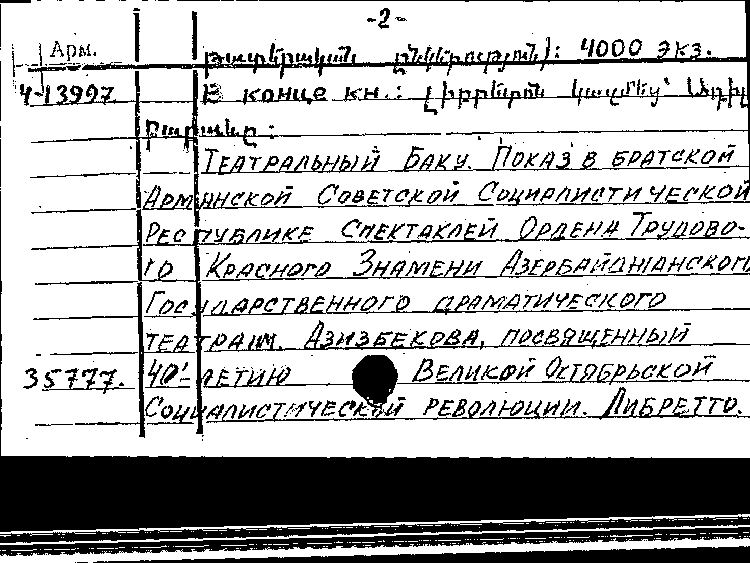 -2-
Арм. թատերական ընկերություն): 4000 экз.
4-13997 В конце кн.: Լիբրետոն կազմեց՝
Բաբանլը:
Театральный Баку. Показ в братской
Армянской Советской Социалистической
Республике спектаклей Ордена Трудово-
го Красного Знамени Азербайджанского
Государственного драматического
театра им. Азизбекова, посвященный
35777. 40'-летию Великой Октябрьской
Социалистической революции. Либретто.